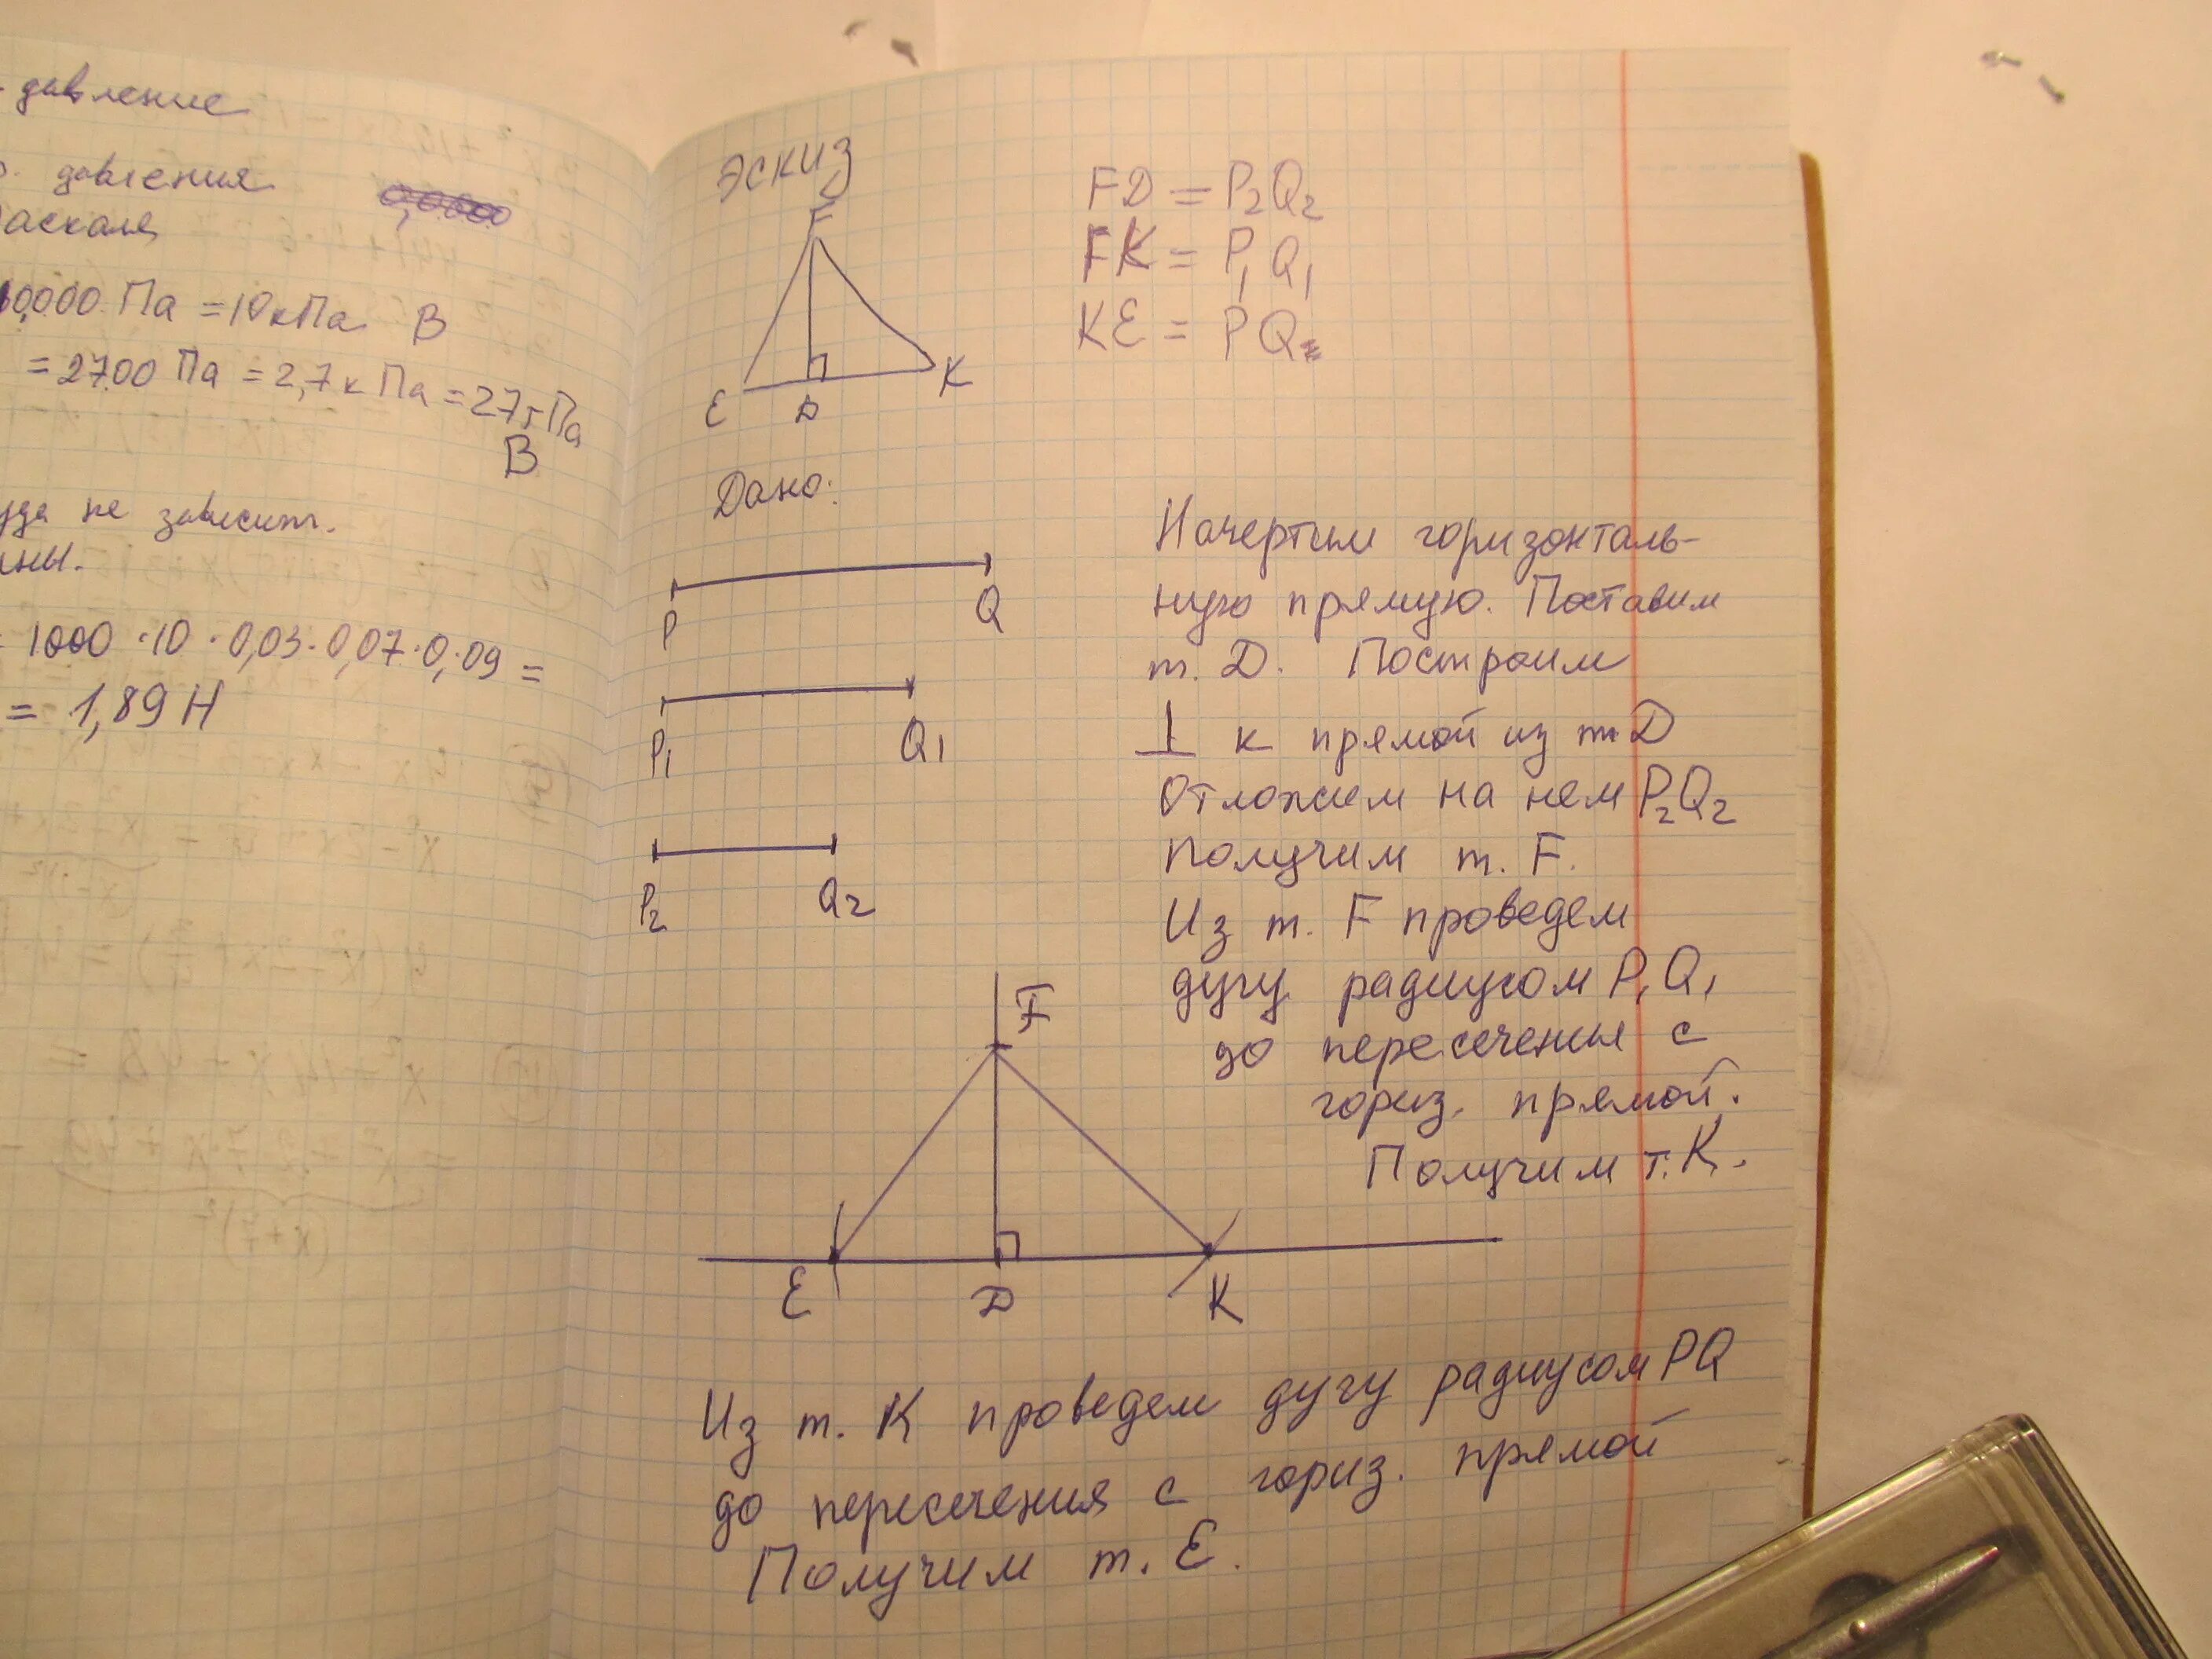 давление
давления
0,0000
аскаля
10000 Па = 10 кПа В
= 2700 Па = 2,7 кПа = 27 гПа
В
не зависит.
= 1000 · 10 · 0,03 · 0,07 · 0,09 =
= 1,89 Н
Эскиз
F
E
D
K
FD = P2Q2
FK = P1Q1
KE = PQ
Дано:
P Q
P1 Q1
P2 Q2
Начертим горизонталь-
ную прямую. Поставим
т. D. Построим
⊥ к прямой из т. D
Отложим на нем P2Q2
получим т. F.
Из т. F проведем
дугу радиусом P1Q1
до пересечения с
гориз. прямой.
Получим т. K.
F
E
D
K
Из т. K проведем дугу радиусом PQ
до пересечения с гориз. прямой
Получим т. E.